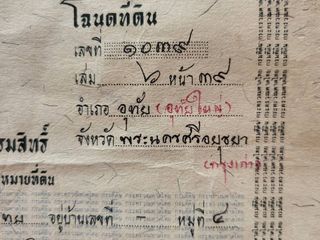 โฉนดที่ดิน
เลขที่ ๑๐๓๙
เล่ม ๖ หน้า ๓๙
อำเภอ อุทัย (อุทัยใหญ่)
จังหวัด พระนครศรีอยุธยา
(กรุงเก่า)
รมสิทธิ์
หมายที่ดิน
ทย อยู่บ้านเลขที่ - หมู่ที่ ๔